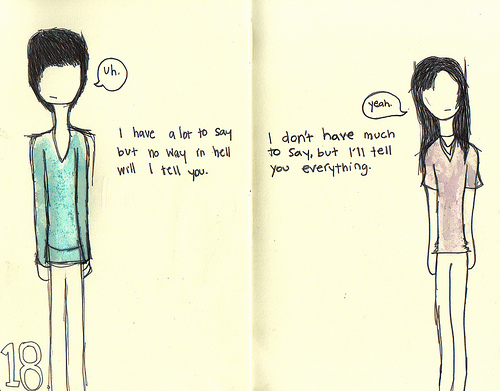 uh.
I have a lot to say
but no way in hell
will I tell you.
yeah.
I don't have much
to say, but I'll tell
you everything.
18